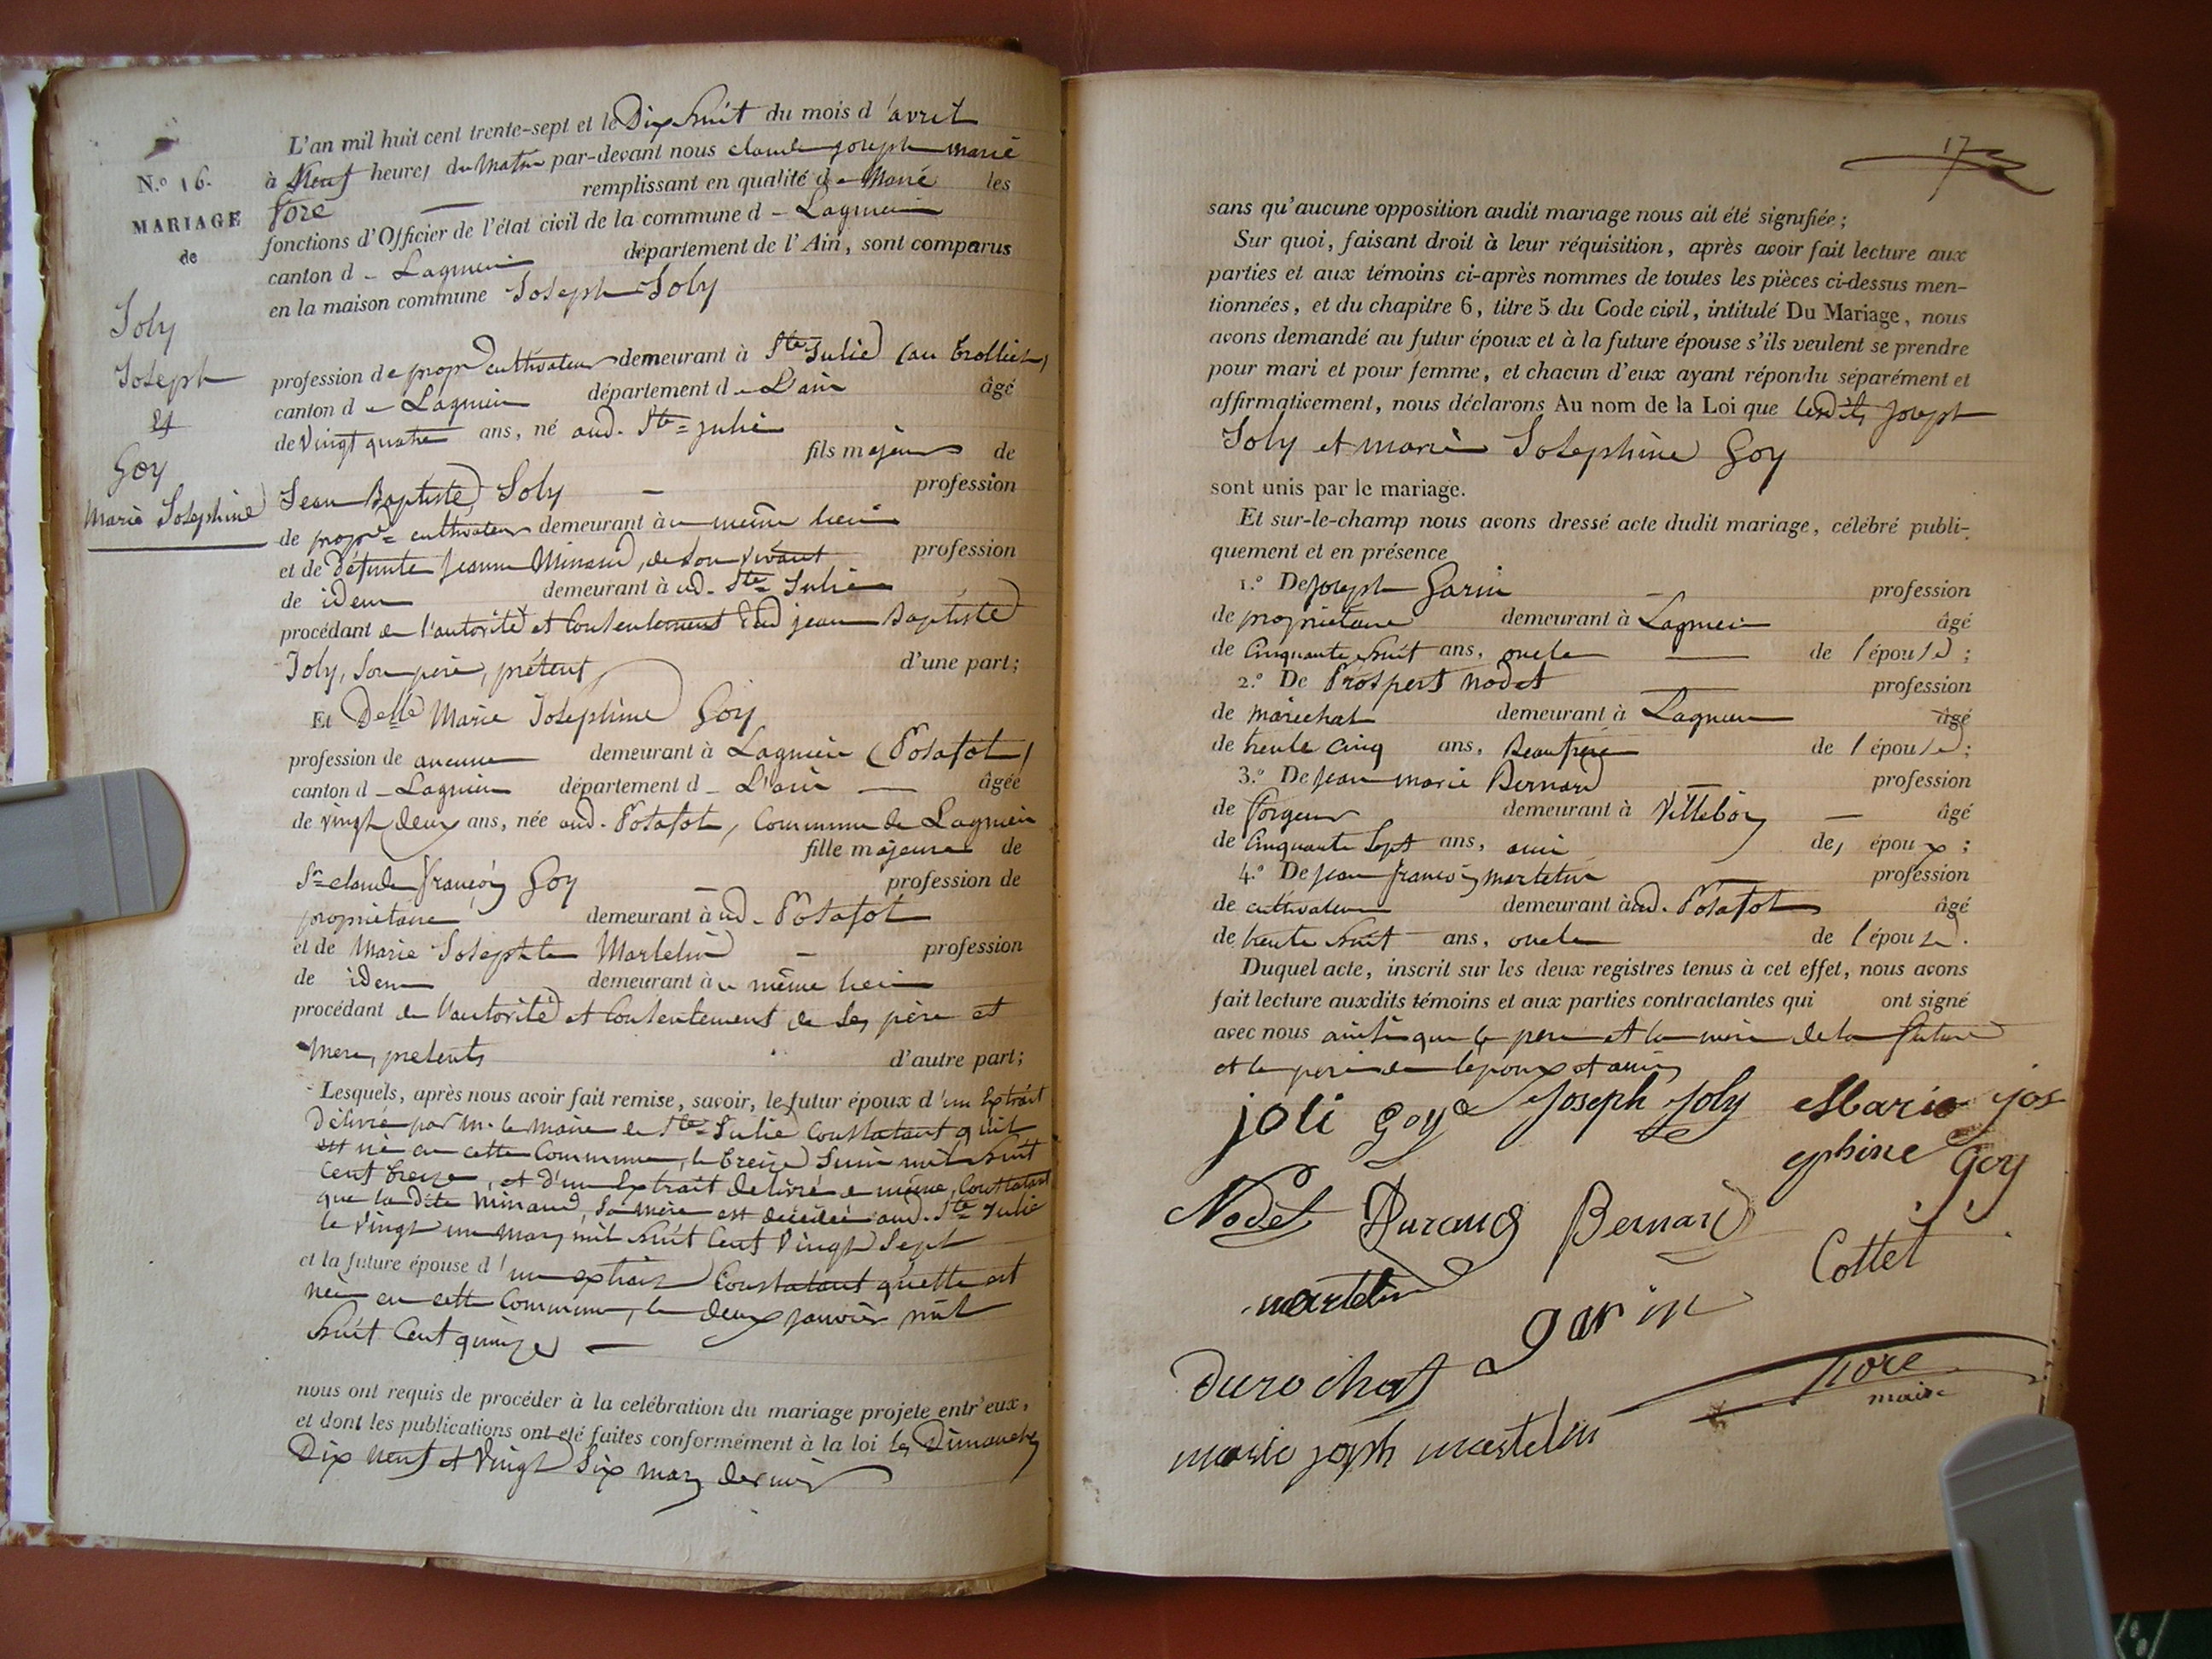 N.º 16.
MARIAGE
de
Joly
Joseph
et
Goy
Marie Josephine
L'an mil huit cent trente-sept et le Dix huit du mois d'avril
à Neuf heures du Matin par-devant nous claude joseph marie
remplissant en qualité de Maire les
fonctions d'Officier de l'état civil de la commune d - Lagnieu
canton d - Lagnieu département de l'Ain, sont comparus
en la maison commune Joseph Joly
profession de propre cultivateur demeurant à Ste Julie (au trolliet)
canton de Lagnieu département de L'ain âgé
de Vingt quatre ans, né aud. Ste = julie
fils majeur de
Jean Baptiste Joly - profession
de propre = cultivateur demeurant au même lieu
et de défunte jeanne Minand, de son vivant profession
de idem demeurant à ud. Ste = Julie
procédant de l'autorité et Consentement dud jean Baptiste
Joly, son père, présent d'une part;
Et Delle Marie Josephine Goy
profession de aucune demeurant à Lagnieu (Posafol)
canton d - Lagnieu département d - L'ain — âgée
de vingt deux ans, née aud. Posafol, Commune de Lagnieu
fille majeure de
Sr = claude françois Goy - profession de
propriétaire demeurant à ud. Posafol
et de Marie Josephte Martelin - profession
de idem demeurant àu même lieu
procédant de l'autorité et Consentement de ses père et
Mere, presents d'autre part;
Lesquels, après nous avoir fait remise, savoir, le futur époux d'un Extrait
Délivré par Mr. le Maire de Ste = Julie Constatant qu'il
est né en cette Commune, le treize Juin mil huit
Cent treize, et d'un Extrait delivré de même, Constatant
que la dite Minand, sa mère est décédée aud. Ste = Julie
le vingt un mars mil huit Cent Vingt Sept
et la future épouse d'un extrait Constatant quelle est
née en cette Commune, le deux janvier mil
huit Cent quinze —
nous ont requis de procéder à la celébration du mariage projeté entr'eux,
et dont les publications ont eté faites conformément à la loi les Dimanches
Dix neuf et Vingt Six mars dernier
17
sans qu'aucune opposition audit mariage nous ait été signifiée;
Sur quoi, faisant droit à leur réquisition, après avoir fait lecture aux
parties et aux témoins ci-après nommes de toutes les pièces ci-dessus men-
tionnées, et du chapitre 6, titre 5 du Code civil, intitulé Du Mariage, nous
avons demandé au futur époux et à la future épouse s'ils veulent se prendre
pour mari et pour femme, et chacun d'eux ayant répondu séparément et
affirmativement, nous déclarons Au nom de la Loi que lesdits Joseph
Joly et marie Josephine Goy
sont unis par le mariage.
Et sur-le-champ nous avons dressé acte dudit mariage, célébré publi-
quement et en présence
1.º De Joseph Garin - profession
de propriétaire demeurant à Lagnieu âgé
de Cinquante huit ans, oncle — de l'épouse;
2.º De Prospert Nodet — profession
de maréchal demeurant à Lagnieu âgé
de trente cinq ans, Beaufrère de l'épouse;
3.º De Jean marie Bernard profession
de forgeur demeurant à Villebois — âgé
de Cinquante Sept ans, ami des époux;
4.º De Jean françois martelin — profession
de cultivateur demeurant àud. Posafol âgé
de trente huit ans, oncle de l'épouse.
Duquel acte, inscrit sur les deux registres tenus à cet effet, nous avons
fait lecture auxdits témoins et aux parties contractantes qui ont signé
avec nous ainsi que le pere et la mère de la future
et le pere de l'époux et amis
joli Goy Joseph Joly Marie jos
ephine Goy
Nodet Durand Bernard
Cottet
martelin
garin
Durochat
maire
marie joseph martelin